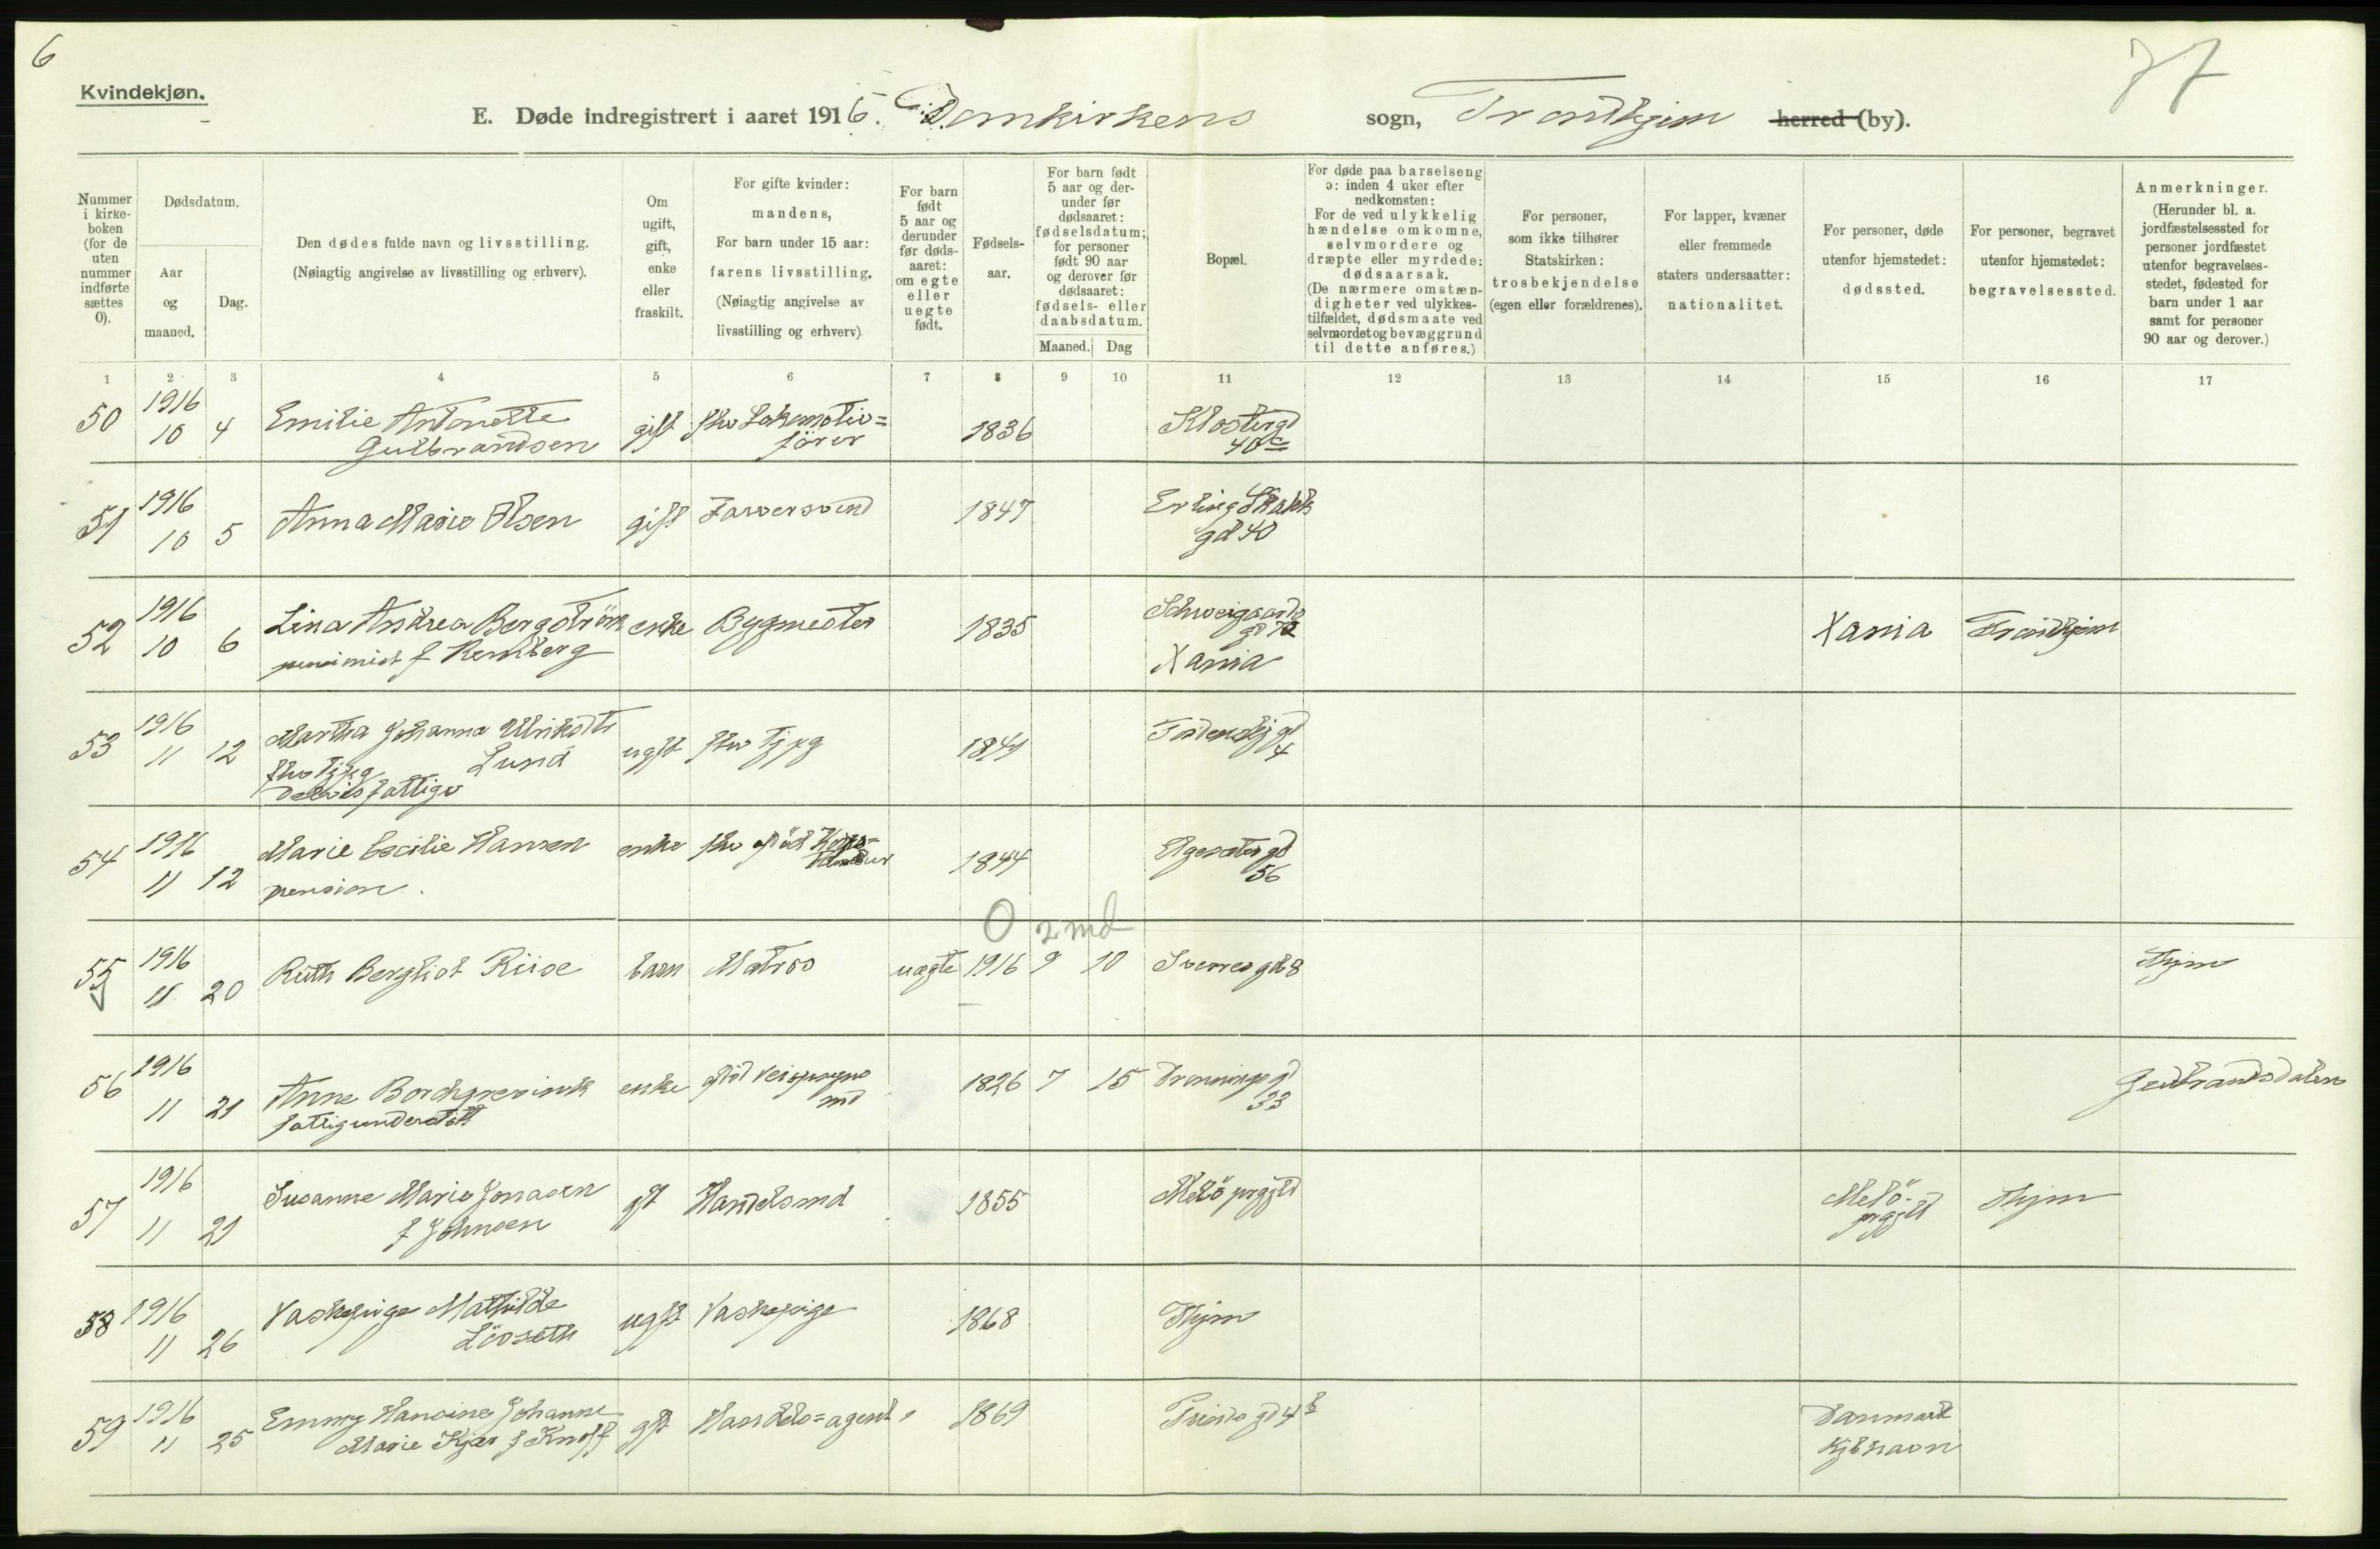 6
77
Kvindekjøn.
E. Døde indregistrert i aaret 1916. Domkirkens sogn, Trondhjem herred (by).
Nummer i kirke-boken (for de uten nummer indførte sættes 0).
Dødsdatum.
Aar og maaned.
Dag.
Den dødes fulde navn og livsstilling.
(Nøiagtig angivelse av livsstilling og erhverv).
Om ugift, gift, enke eller fraskilt.
For gifte kvinder: mandens,
For barn under 15 aar: farens livsstilling.
(Nøiagtig angivelse av livsstilling og erhverv)
For barn født 5 aar og derunder før døds-aaret: om egte eller uegte født.
Fødsels-aar.
For barn født 5 aar og der-under før dødsaaret: fødselsdatum; for personer født 90 aar og derover før dødsaaret: fødsels- eller daabsdatum.
Maaned. Dag
Bopæl.
For døde paa barselseng ɔ: inden 4 uker efter nedkomsten:
For de ved ulykkelig hændelse omkomne, selvmordere og dræpte eller myrdede: dødsaarsak.
(De nærmere omstæn-digheter ved ulykkes-tilfældet, dødsmaate ved selvmordet og bevæggrund til dette anføres.)
For personer, som ikke tilhører Statskirken: trosbekjendelse (egen eller forældrenes).
For lapper, kvæner eller fremmede staters undersaatter: nationalitet.
For personer, døde utenfor hjemstedet: dødssted.
For personer, begravet utenfor hjemstedet: begravelsessted.
Anmerkninger.
(Herunder bl. a. jordfæstelsessted for personer jordfæstet utenfor begravelses-stedet, fødested for barn under 1 aar samt for personer 90 aar og derover.)
1 2 3 4 5 6 7 8 9 10 11 12 13 14 15 16 17
50 1916 10 4 Emilie Antonette Gulbrandsen gift fhv Lokomotiv=fører 1836 Klostergd 40c
51 1916 10 5 Anna Marie Olsen gift 1847 Erling Skakks gd 40
52 1916 10 6 Lina Andrea Bergström f Remberg enke Bygmester 1835 Schweigaards gd Xania Xania Trondhjem
53 1916 11 12 Martha Johanna Ulriksdtr Lund fhv Tjpg delvis fattigv ugft fhv Tjpg 4
54 1916 11 12 Marie Cecilie Hansen pension. enke fhv 1844 Elgesetergd 56
O 2 md
55 1916 11 20 Ruth Bergliot Riise barn Matros uægte 1916 9 10 Sverresgd 8 Thjm
56 1916 11 21 Anne Borchgrevink fattigunderstøtt enke 1826 7 15 Dronningsgd 33 Gudbrandsdalen
57 1916 11 21 Susanne Marie Jonasen f Johnsen gft Handelsmd 1855 Melö prgjld Melö prgjld Thjm
58 1916 11 26 Vaskepige Mathilde ugft Vaskepige 1868 Thjm
59 1916 11 25 Emmy Hansine Johanne Marie Kjær f Knoff gft Handels=agent 1869 Prinds gd 4b Danmark Kjbhavn